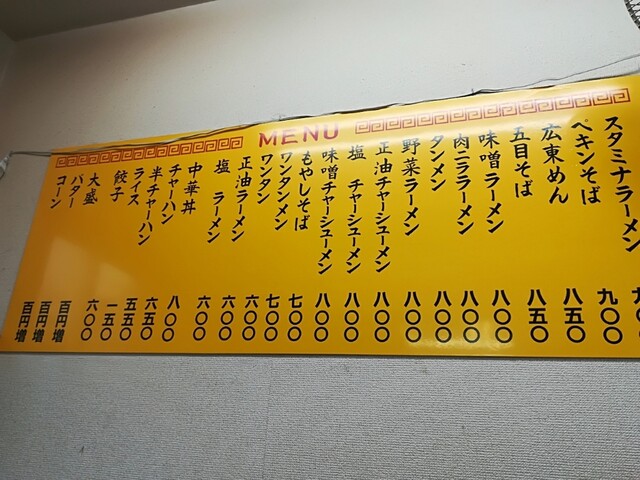 MENU
スタミナラーメン
ペキンそば 九〇〇
広東めん 八五〇
五目そば 八五〇
味噌ラーメン 八〇〇
肉ニララーメン 八〇〇
タンメン 八〇〇
野菜ラーメン 八〇〇
正油チャーシューメン 八〇〇
塩 チャーシューメン 八〇〇
味噌チャーシューメン 八〇〇
もやしそば 七〇〇
ワンタンメン 七〇〇
ワンタン 六〇〇
正油ラーメン 六〇〇
塩 ラーメン 六〇〇
中華丼 八〇〇
チャーハン 六五〇
半チャーハン 五五〇
ライス 一五〇
餃子 六〇〇
大盛 百円増
バター 百円増
コーン 百円増